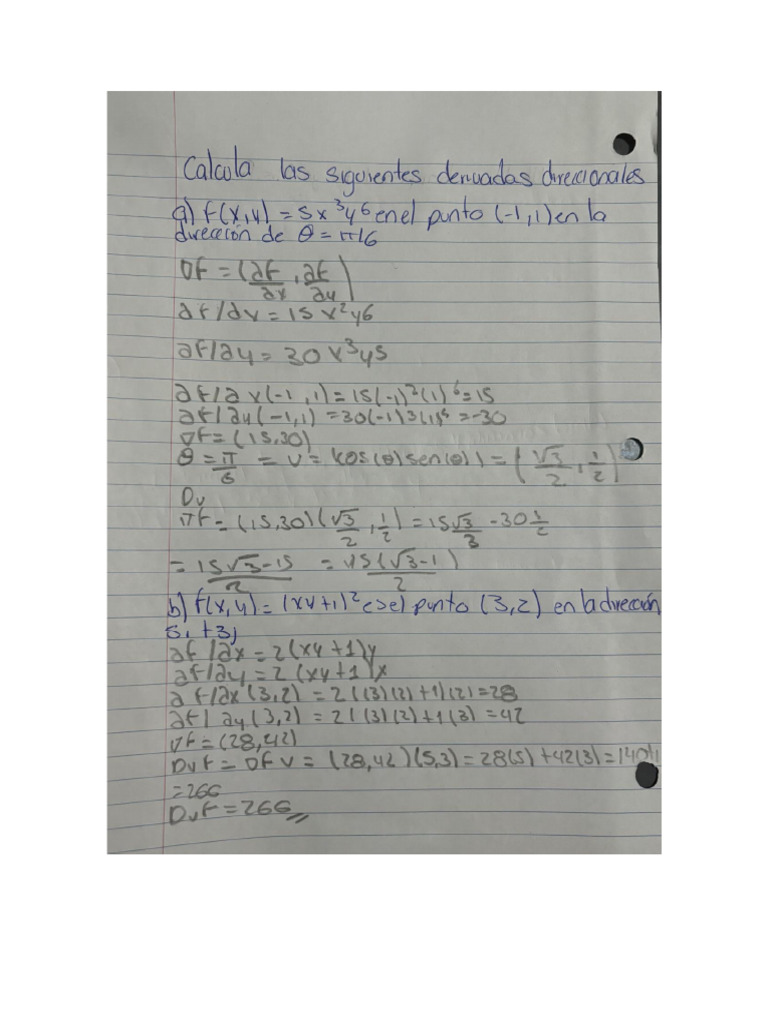 Calcula las siguientes derivadas direccionales
a) f(x,y) = 5x³y6 en el punto (-1,1) en la
dirección de θ = π/6
∇F = (∂F/∂x, ∂F/∂y)
∂F/∂x = 15x²y6
∂F/∂y = 30x³y5
∂F/∂x(-1,1) = 15(-1)²(1)⁶ = 15
∂F/∂y(-1,1) = 30(-1)3(1)⁵ = -30
∇F = (15,30)
θ = π/6 = v = kos(θ)sen(θ)) = (√3/2, 1/2)
Dv
πF = (15,30)(√3/2, 1/2) = 15√3/3 - 30 1/2
= 15√3-15/2 = 15(√3-1)/2
b) f(x,y) = (xy+1)² es el punto (3,2) en la dirección
5i +3j
∂F/∂x = 2(xy+1)y
∂F/∂y = 2(xy+1)x
∂F/∂x(3,2) = 2((3)(2)+1)(2) = 28
∂F/∂y(3,2) = 2((3)(2)+1(3) = 42
∇F = (28,42)
DvF = ∇F v = (28,42)(5,3) = 28(5) + 42(3) = 140
= 266
DvF = 266